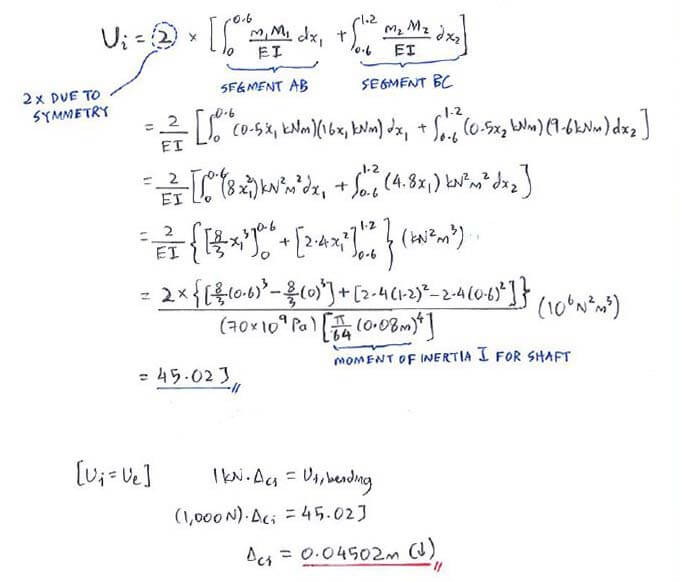 Ui = 2 × [∫₀^0.6 m₁M₁/EI dx₁ + ∫₀.₆^1.2 m₂M₂/EI dx₂]
SEGMENT AB SEGMENT BC
2x DUE TO
SYMMETRY
= 2/EI [∫₀^0.6 (0.5x₁ kNm)(16x₁ kNm) dx₁ + ∫₀.₆^1.2 (0.5x₂ kNm)(9.6kNm) dx₂]
= 2/EI [∫₀^0.6 (8x₁²) kN²m² dx₁ + ∫₀.₆^1.2 (4.8x₁) kN²m² dx₂]
= 2/EI {[8/3 x₁³]₀^0.6 + [2.4x₁²]₀.₆^1.2} (kN²m³)
= 2×{[8/3(0.6)³ - 8/3(0)³] + [2.4(1.2)² - 2.4(0.6)²]} / (70×10⁹Pa)[π/64 (0.08m)⁴] (10⁶N²m³)
MOMENT OF INERTIA I FOR SHAFT
= 45.02J
[Ui=Ue] 1kN.Δc₁ = U₁,bending
(1,000N).Δc₁ = 45.02J
Δc₁ = 0.04502m (↓)